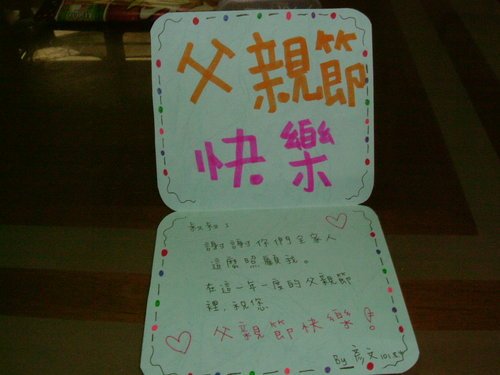 父親節
快樂
叔叔：
謝謝你們全家人
這麼照顧我。
在這一年一度的父親節
裡，祝您
父親節快樂！
By 彥文